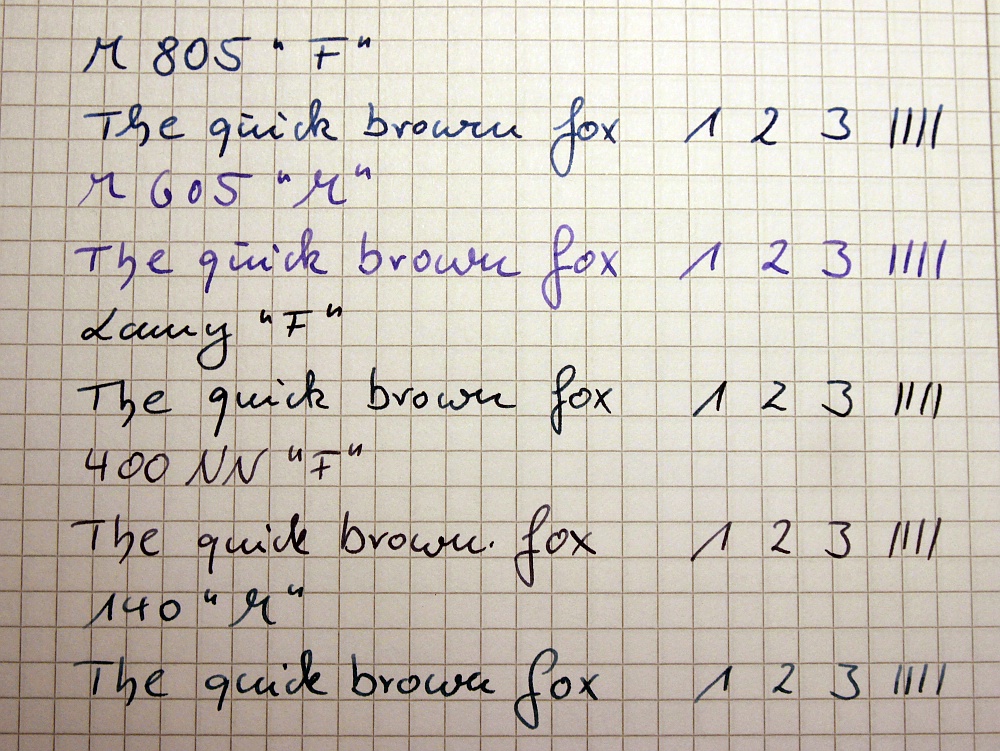 M 805 "F"
The quick brown fox 1 2 3 ||||
M 605 "M"
The quick brown fox 1 2 3 ||||
Lamy "F"
The quick brown fox 1 2 3 ||||
400 NN "F"
The quick brown. fox 1 2 3 ||||
140 "M"
The quick brown fox 1 2 3 ||||